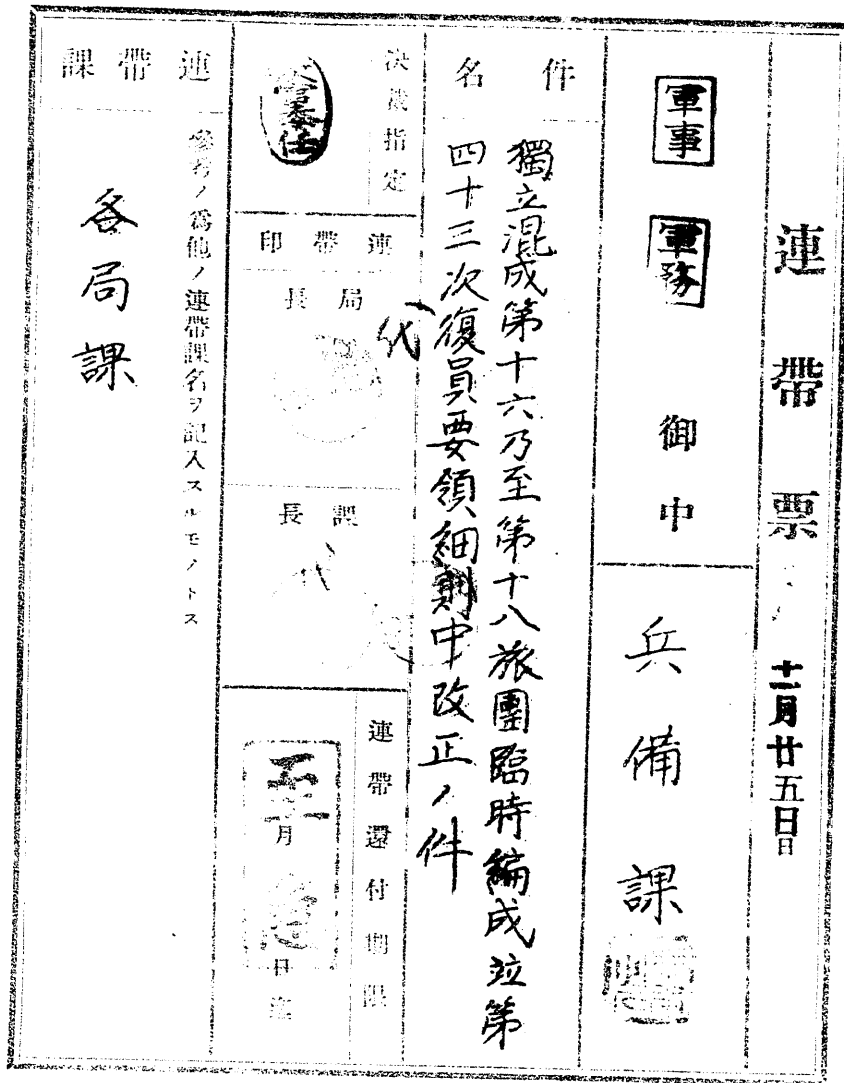 連帶票
十一月廿五日日
軍事
軍務
御中
兵備課
件名
獨立混成第十六乃至第十八旅團臨時編成竝第
四十三次復員要領細則中改正ノ件
決裁指定
委任
連帶印
局長
代
課長
代
連帶還付期限
至急
月
日迄
連帶課
參考ノ爲他ノ連帶課名ヲ記入スルモノトス
各局課